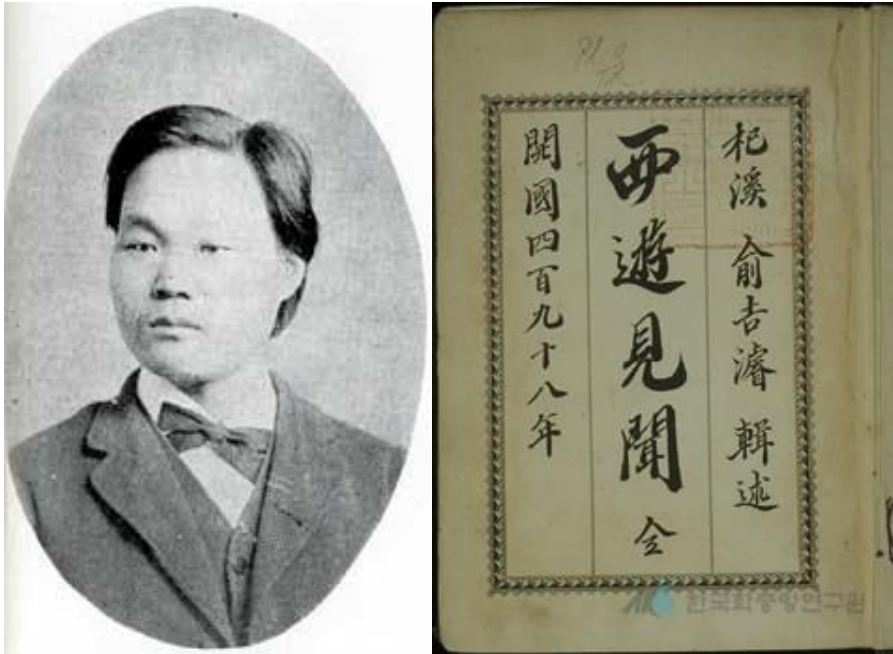 杞溪 兪吉濬 輯述
西遊見聞 全
開國四百九十八年
한국학중앙연구원